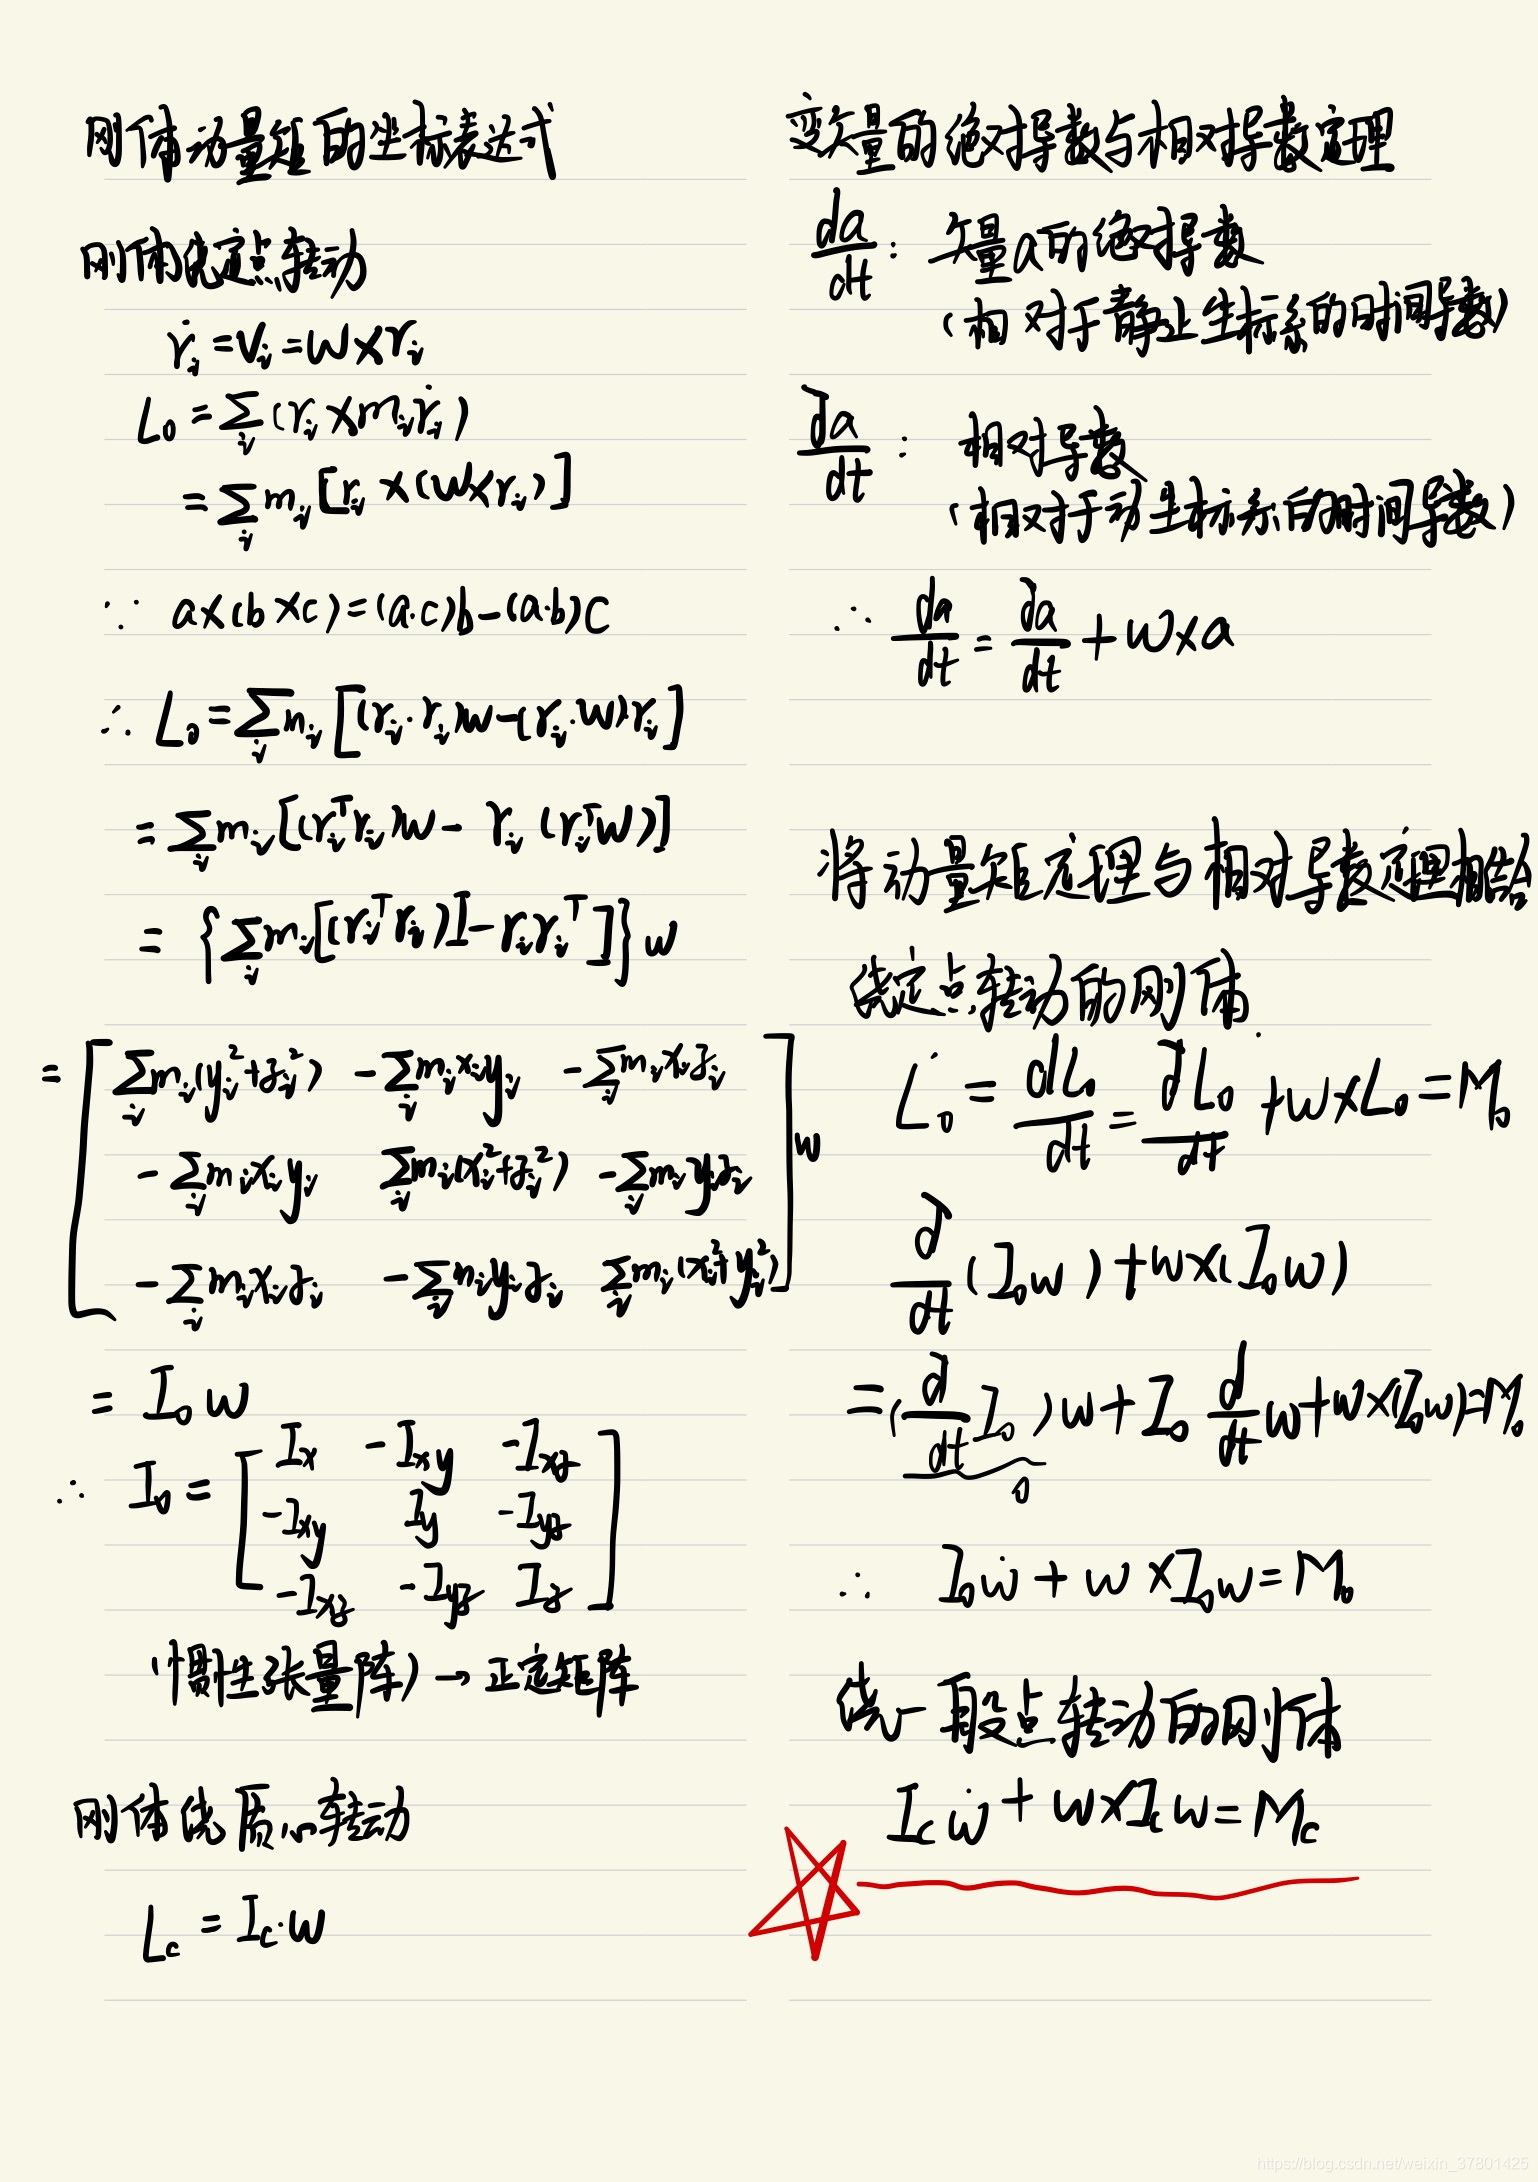 刚体动量矩的坐标表达式
刚体绕定点转动
ṙᵢ = vᵢ = w × rᵢ
L₀ = Σᵢ (rᵢ × mᵢṙᵢ)
= Σᵢ mᵢ [rᵢ × (w × rᵢ)]
∵ a×(b×c) = (a·c)b − (a·b)c
∴ L₀ = Σᵢ mᵢ [(rᵢ·rᵢ)w − (rᵢ·w)rᵢ]
= Σᵢ mᵢ [(rᵢᵀrᵢ)w − rᵢ(rᵢᵀw)]
= {Σᵢ mᵢ [(rᵢᵀrᵢ)I − rᵢrᵢᵀ]} w
= [ Σᵢ mᵢ(yᵢ²+zᵢ²) −Σᵢ mᵢxᵢyᵢ −Σᵢ mᵢxᵢzᵢ
−Σᵢ mᵢxᵢyᵢ Σᵢ mᵢ(xᵢ²+zᵢ²) −Σᵢ mᵢyᵢzᵢ
−Σᵢ mᵢxᵢzᵢ −Σᵢ mᵢyᵢzᵢ Σᵢ mᵢ(xᵢ²+yᵢ²) ] w
= I₀ w
∴ I₀ = [ Iₓ −Ixy −Ixz
−Ixy Iy −Iyz
−Ixz −Iyz Iz ]
(惯性张量阵) → 正定矩阵
刚体绕质心转动
Lc = Ic·w
变矢量的绝对导数与相对导数定理
da/dt : 矢量a的绝对导数
(相对于静止坐标系的时间导数)
∂a/dt : 相对导数
(相对于动坐标系的时间导数)
∴ da/dt = ∂a/dt + w×a
将动量矩定理与相对导数定理相结合
绕定点转动的刚体
L̇₀ = dL₀/dt = ∂L₀/dt + w×L₀ = M₀
∂/dt (I₀w) + w×(I₀w)
= (∂/dt I₀)w + I₀ d/dt w + w×(I₀w) = M₀
0
∴ I₀ẇ + w×I₀w = M₀
绕一般点转动的刚体
Icẇ + w×Icw = Mc
https://blog.csdn.net/weixin_37801425